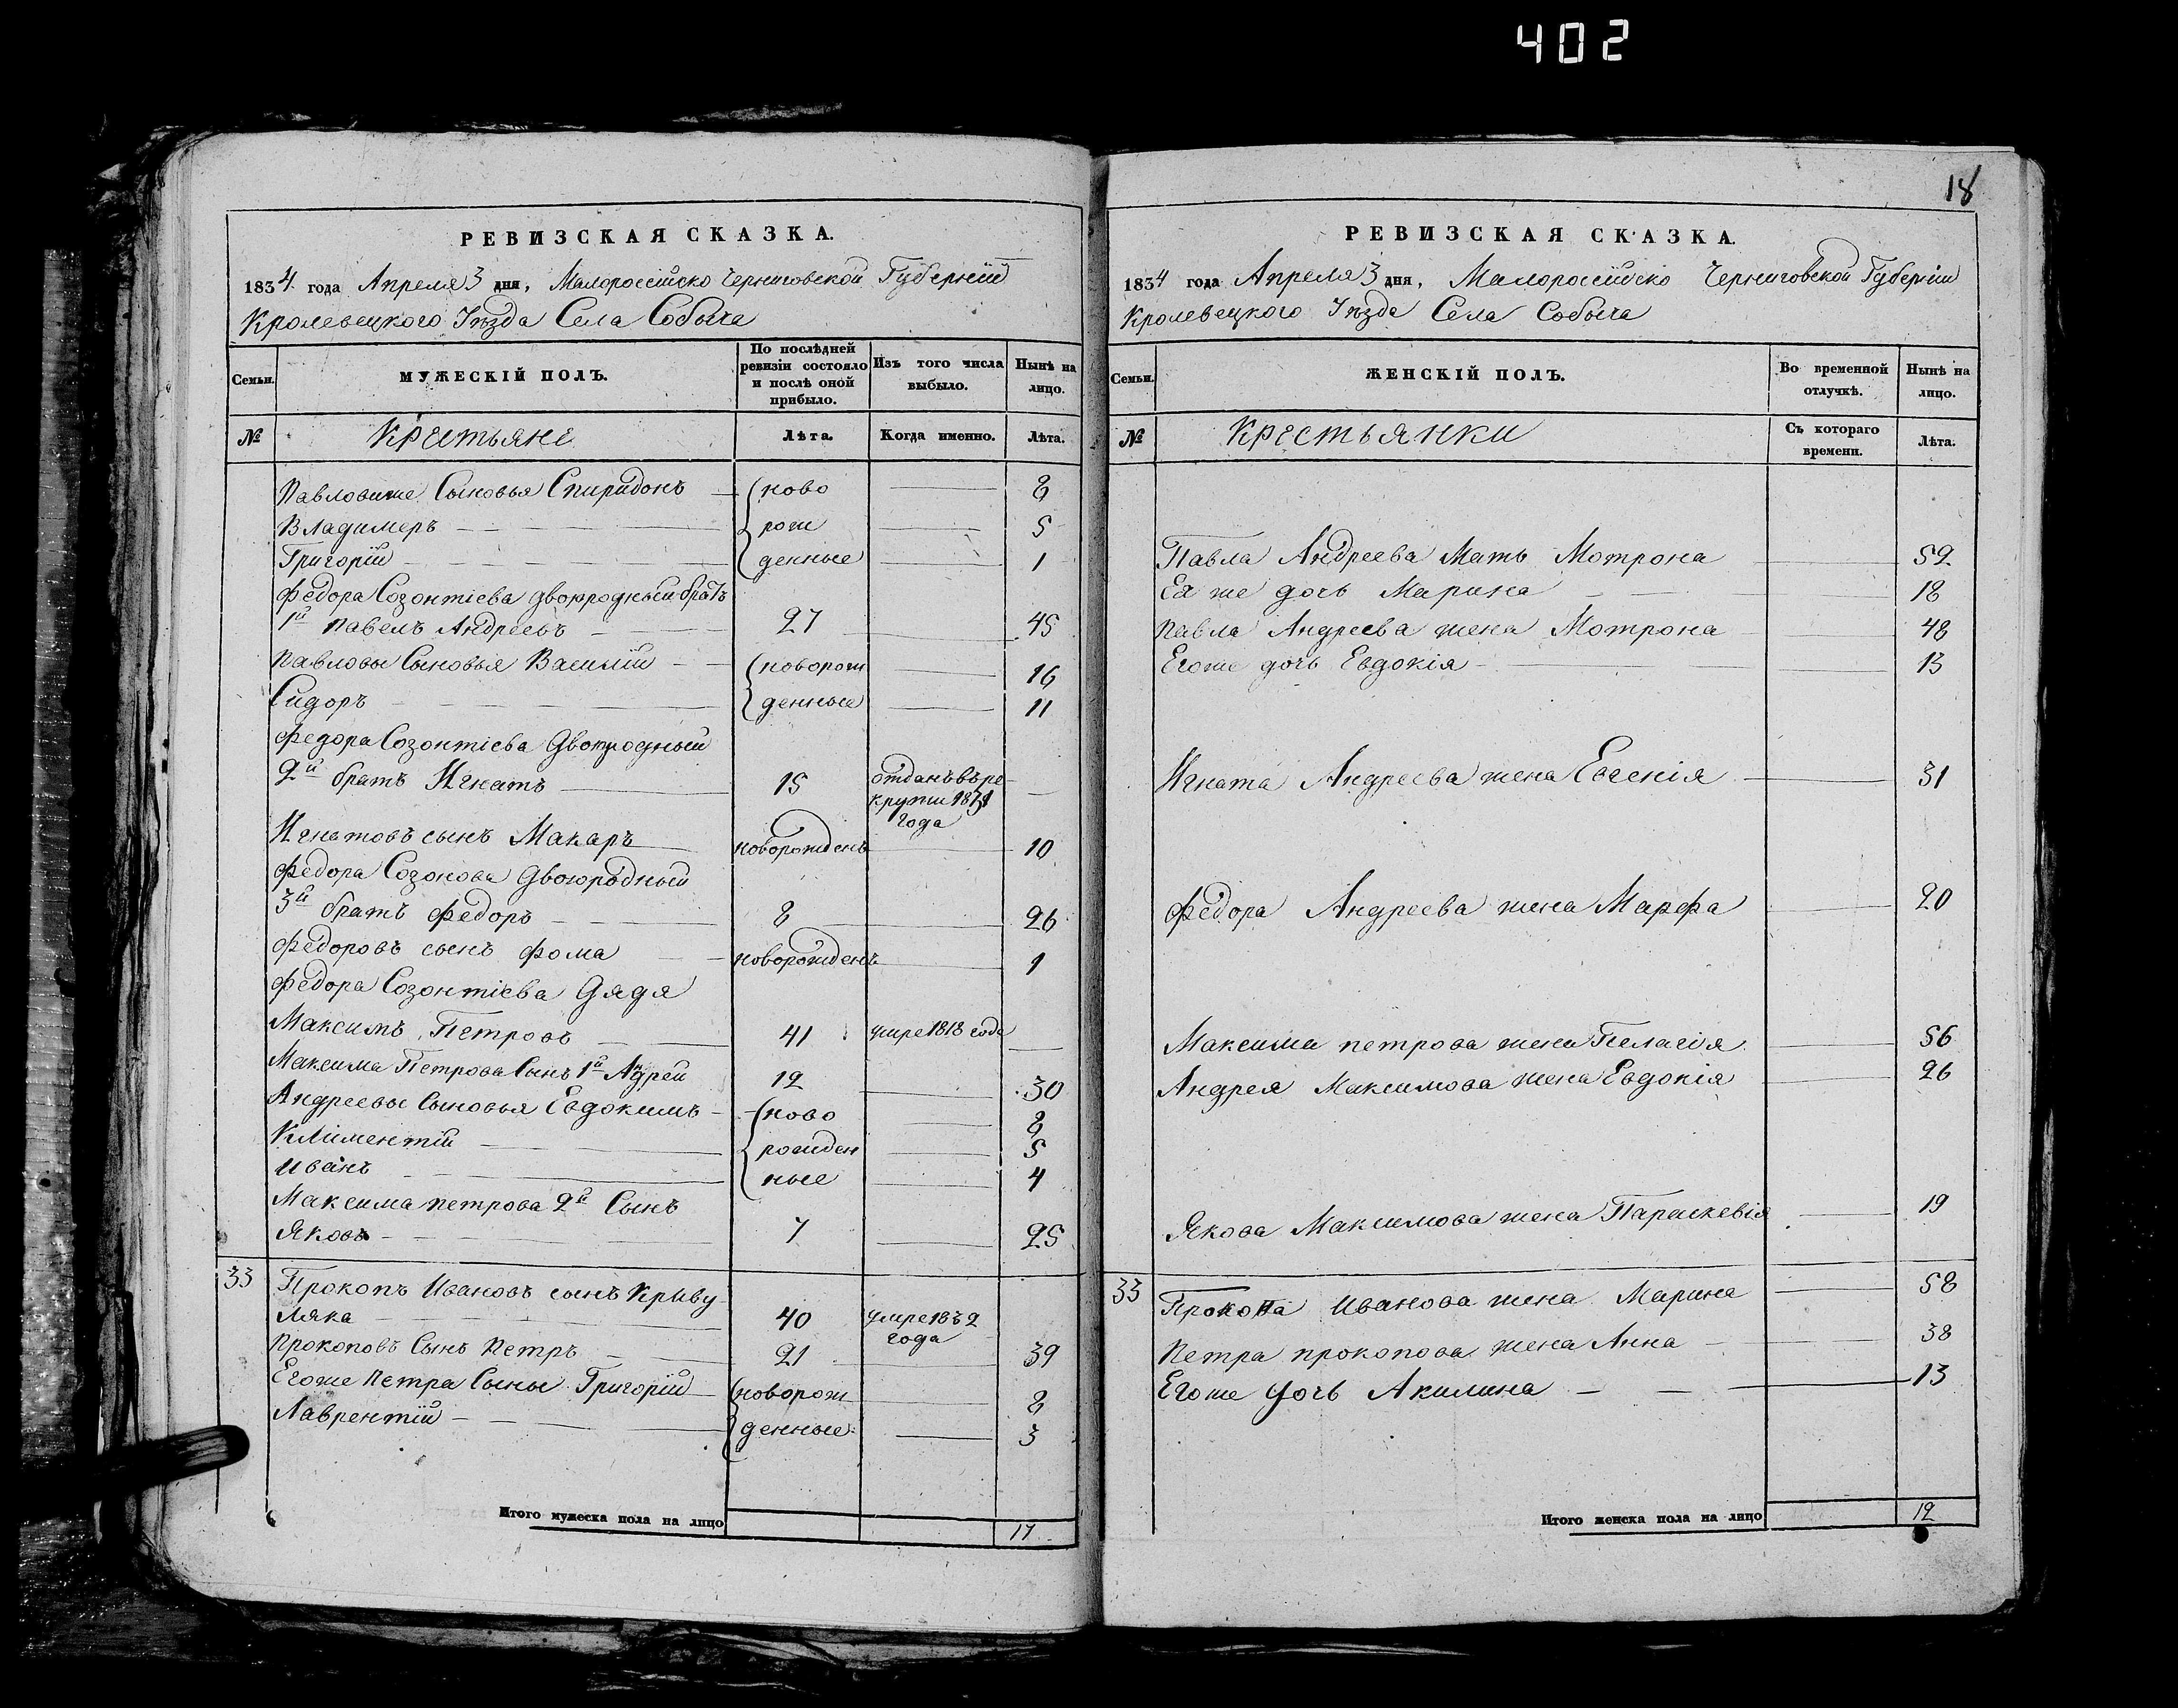 402
18
РЕВИЗСКАЯ СКАЗКА.
1834 года Апреля 3 дня, Малороссійско Черниговской Губерніи
Кролевецкого Уѣзда Села Собыча
Семьи.
МУЖЕСКІЙ ПОЛЪ.
По послѣдней ревизіи состояло и послѣ оной прибыло.
Изъ того числа выбыло.
Нынѣ на лицо.
№ Крестьяне Лѣта. Когда именно. Лѣта.
Павловиже Сыновья Спиридонъ — ново — 8
Владимеръ — рож — 5
Григорій — денные — 1
Федора Созонтіева двоюродный братъ
1й Павелъ Андреевъ — 27 — 45
Павловы Сыновья Василій — новорож — 16
Сидоръ — денные — 11
Федора Созонтіева Двоюродный
2й братъ Игнатъ — 15 отданъ въ ре- —
крути 1831
года
Игнатовъ сынъ Макаръ новорожденъ — 10
Федора Созонова Двоюродный
3й братъ Федоръ — 8 — 26
Федоровъ сынъ Фома — новорожденъ — 1
Федора Созонтіева Дядя
Максимъ Петровъ — 41 умре 1818 года —
Максима Петрова Сынъ 1й Андрей 12 — 30
Андреевы Сыновья Евдокимъ — ново — 8
Климентій — рожден — 5
Иванъ — ные — 4
Максима Петрова 2й Сынъ
Яковъ — 7 — 25
33 Прокопъ Ивановъ сынъ Крыву-
ляка — 40 умре 1832
года
Прокоповъ Сынъ Петръ — 21 — 39
Егоже Петра Сыны Григорій — новорож — 8
Лаврентій — денные — 3
Итого мужеска пола на лицо 17
РЕВИЗСКАЯ СКАЗКА.
1834 года Апреля 3 дня, Малороссійско Черниговской Губерніи
Кролевецкого Уѣзда Села Собыча
Семьи.
ЖЕНСКІЙ ПОЛЪ.
Во временной отлучкѣ.
Нынѣ на лицо.
№ Крестьянки Съ котораго времени. Лѣта.
Павла Андреева Мать Мотрона — 59
Ея же дочь Марина — 18
Павла Андреева жена Мотрона — 48
Егоже дочь Евдокія — 13
Игната Андреева жена Евгенія — 31
Федора Андреева жена Марфа — 20
Максима Петрова жена Пелагія — 56
Андрея Максимова жена Евдокія — 26
Якова Максимова жена Параскевія — 19
33 Прокопа Иванова жена Марина — 58
Петра Прокопова жена Анна — 38
Егоже дочь Акилина — 13
Итого женска пола на лицо 12